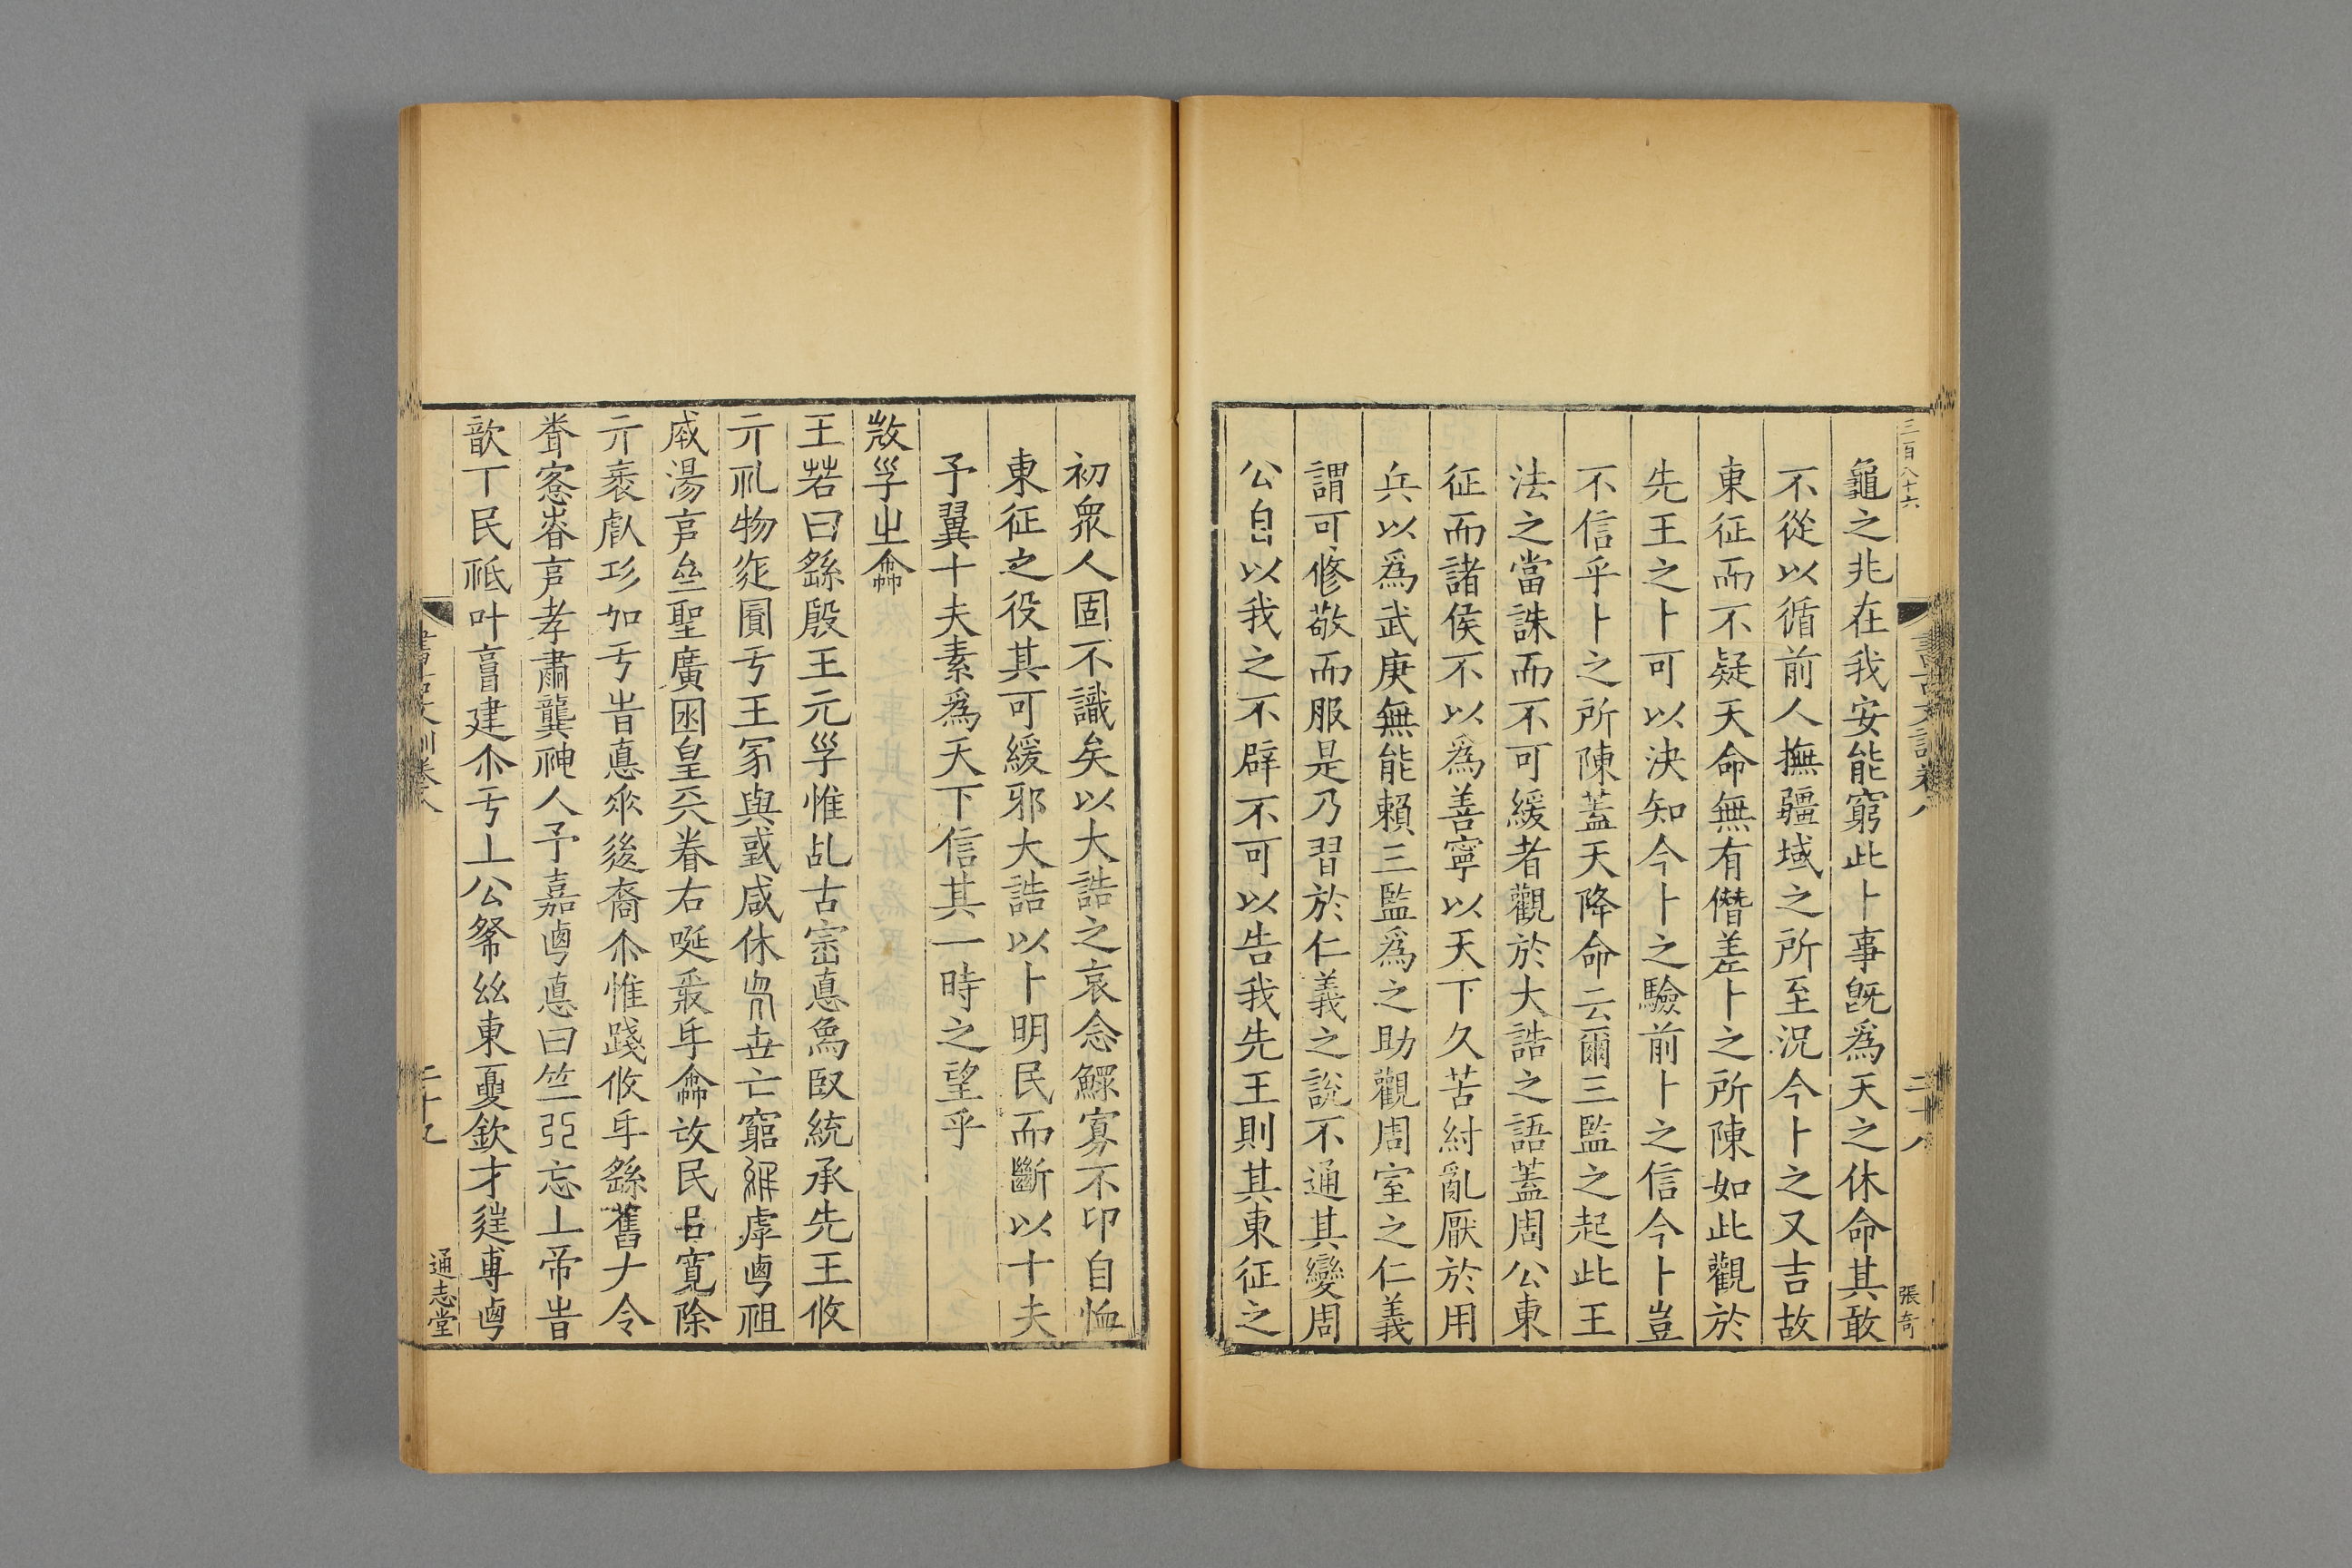 三百八十六
書古文訓卷八
二十八
張奇
龜之兆在我安能窮此卜事旣爲天之休命其敢
不從以循前人撫疆域之所至況今卜之又吉故
東征而不疑天命無有僭差卜之所陳如此觀於
先王之卜可以決知今卜之驗前卜之信今卜豈
不信乎卜之所陳蓋天降命云爾三監之起此王
法之當誅而不可緩者觀於大誥之語蓋周公東
征而諸侯不以爲善寧以天下久苦紂亂厭於用
兵以爲武庚無能賴三監爲之助觀周室之仁義
謂可修敬而服是乃習於仁義之說不通其變周
公自以我之不辟不可以告我先王則其東征之
初衆人固不識矣以大誥之哀念鰥寡不卬自恤
東征之役其可緩邪大誥以卜明民而斷以十夫
予翼十夫素爲天下信其一時之望乎
㪣孚㞢龠
王若曰繇殷王元孚惟乩古崈悳爲臤統承先王攸
亓礼物𨒌圎亐王冢與或咸休𠔃𠀍亡窮𦀚虖𠧟祖
成湯亯𠀤聖廣囦皇兲眷右唌𠬪𠂝龠改民㠯寬除
亓衺㪯㓛加亐旹悳𠂹後裔尒惟踐攸𠂝繇舊𠂇令
䛑愙昚亯孝肅龔神人予嘉𠧟悳曰竺弫忘丄帝旹
歆丅民祗叶𠅤建尒亐丄公𢁥𢆶東夏欽才𨓹専𠧟
書古文訓卷八
二十九
通志堂